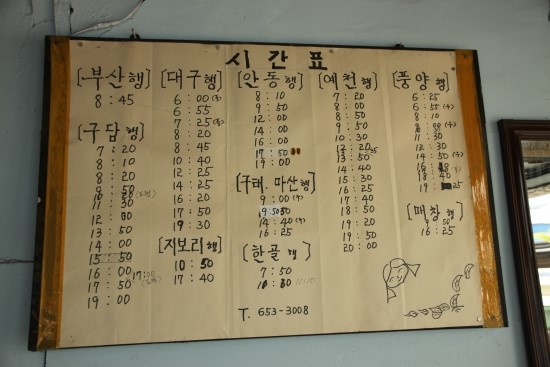 시간표
[부산행]
8:45
[구담행]
7:20
8:10
9:20
11:30
12:30
13:50
14:00
15:50
16:00 17:00
17:50
19:00
[대구행]
6:00(주)
6:55
7:25(주)
8:20
8:45
10:40
12:25
14:25
16:20
17:50
19:30
[지보리행]
10:50
17:40
[안동행]
8:10
9:50
12:00
14:00
16:00
17:50
19:00
[구태.마산행]
9:00(주)
9:50
14:40(주)
16:25
[한골행]
7:50
10:30
T. 653-3008
[예천행]
7:20
8:00
9:50
10:30
12:20
13:50
14:40
15:30
16:25
17:40
18:50
19:20
19:50
20:00
[풍양행]
6:25
6:55(주)
8:10
11:30
12:30
14:50(주)
16:25
18:40
19:25
[매창행]
9:50
16:25